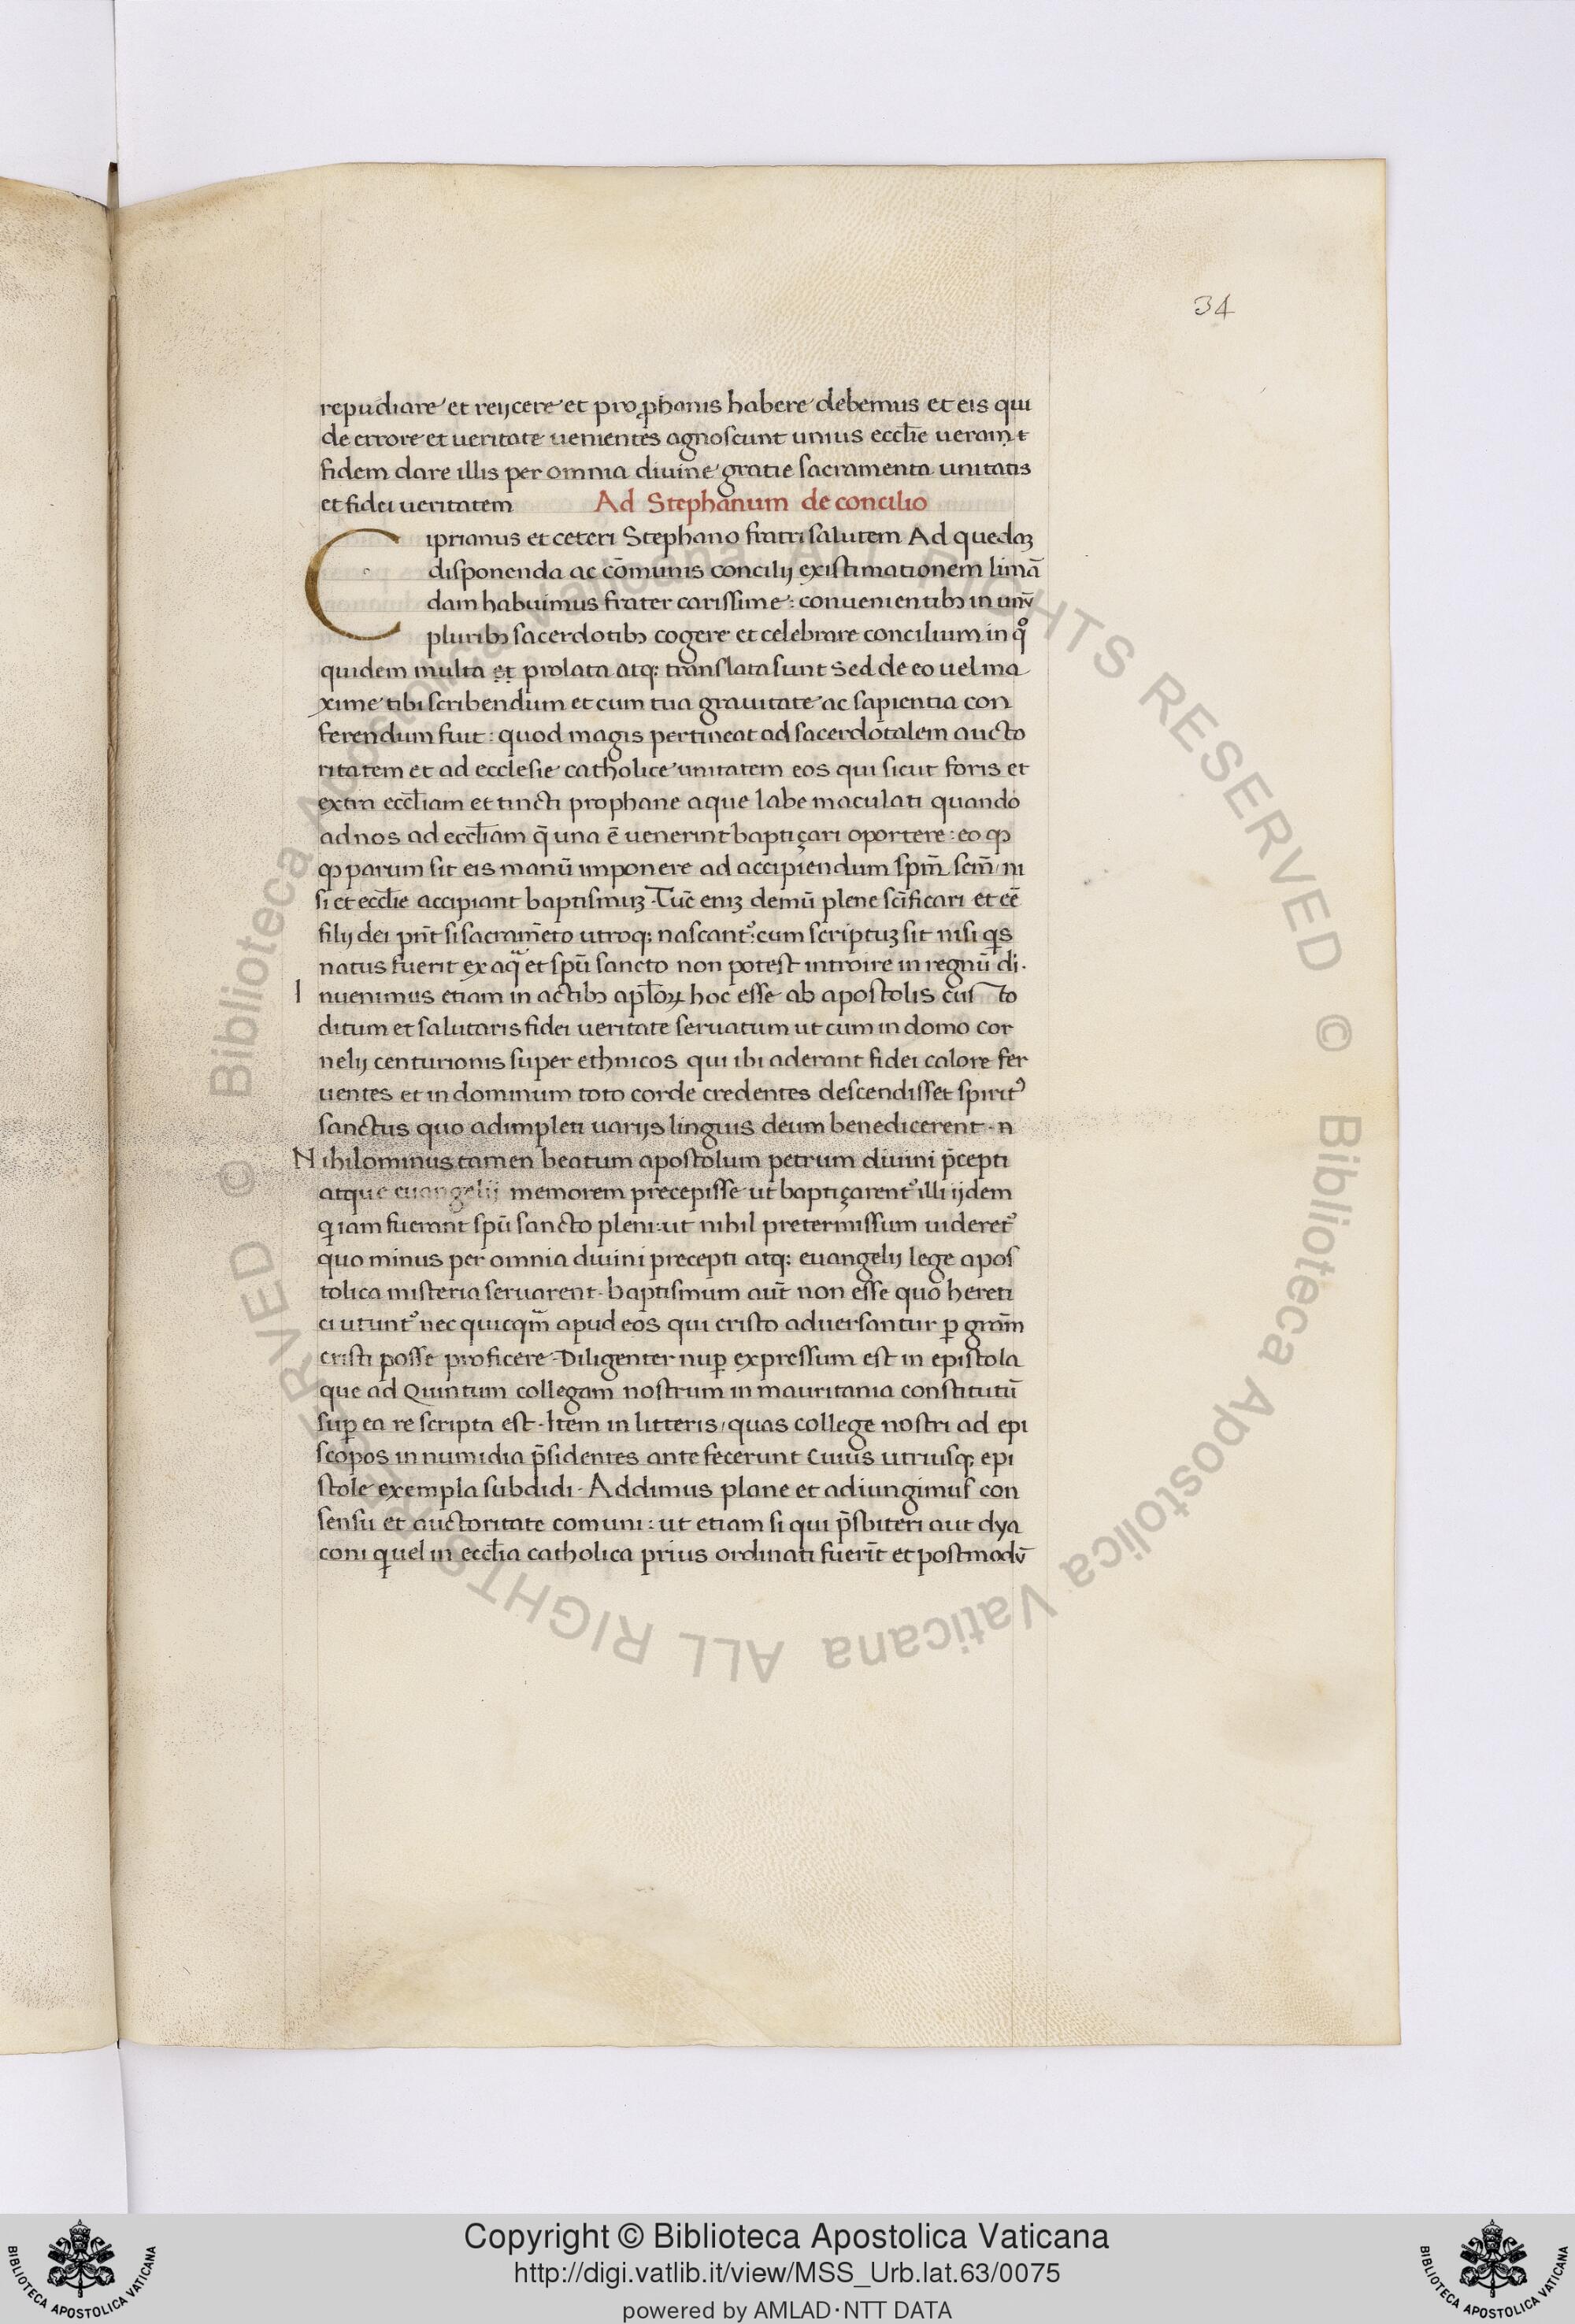 34
repudiare et reijcere et pro prophanis habere debemus et eis qui
de errore et ueritate uenientes agnoscunt unius eccl̄ie ueram et
fidem dare illis per omnia diuine gratie sacramenta unitatis
et fidei ueritatem Ad Stephanum de concilio
Ciprianus et ceteri Stephano fratri salutem Ad quedaꝫ
disponenda ac cōmunis concilij existimationem limā
dam habuimus frater carissime: conuenientibꝫ in unū
pluribꝫ sacerdotibꝫ cogere et celebrare concilium in qͦ
quidem multa et prolata atqꝫ translata sunt Sed de eo uel ma
xime tibi scribendum et cum tua grauitate ac sapientia con
ferendum fuit: quod magis pertineat ad sacerdotalem aucto
ritatem et ad ecclesie catholice unitatem eos qui sicut foris et
extra eccl̄iam et tincti prophane aque labe maculati quando
ad nos ad eccl̄iam q̄ una ē uenerint baptiçari oportere: eo ꝙ
ꝙ parum sit eis manū imponere ad accipiendum sp̄m sc̄m / ni
si et eccl̄ie accipiant baptismuꝫ. Tūc eniꝫ demū plene sc̄ificari et eē
filij dei pn̄t si sacram̄eto utroqꝫ nascant᷑: cum scriptuꝫ sit nisi qͥs
natus fuerit ex aqͣ et sp̄u sancto non potest introire in regnū di.
Inuenimus etiam in actibꝫ apl̄oꝝ hoc esse ab apostolis cus to
ditum et salutaris fidei ueritate seruatum ut cum in domo cor
nelij centurionis super ethnicos qui ibi aderant fidei calore fer
uentes et in dominum toto corde credentes descendisset spiritꝰ
sanctus quo adimpleti uarijs linguis deum benedicerent. n
Nihilominus tamen beatum apostolum petrum diuini p̄cepti
atque euangelij memorem precepisse ut baptiçarent᷑ illi ijdem
qͥ iam fuerant sp̄u sancto pleni: ut nihil pretermissum uideret᷑
quo minus per omnia diuini precepti atqꝫ euangelij lege apos
tolica misteria seruarent. baptismum aut̄ non esse quo hereti
ci utunt᷑ nec quicqm̄ apud eos qui cristo aduersantur ꝑ grām
cristi posse proficere. Diligenter nuꝑ expressum est in epistola
que ad Quintum collegam nostrum in mauritania constitutū
suꝑ ea re scripta est. Item in litteris / quas college nostri ad epi
scopos in numidia p̄sidentes ante fecerunt cuius utriusqꝫ epi
stole exempla subdidi. Addimus plane et adiungimus con
sensu et auctoritate comuni: ut etiam si qui p̄sbiteri aut dya
coni qͥ uel in eccl̄ia catholica prius ordinati fuerīt et postmodū
Copyright © Biblioteca Apostolica Vaticana
http://digi.vatlib.it/view/MSS_Urb.lat.63/0075
powered by AMLAD·NTT DATA
BIBLIOTECA APOSTOLICA VATICANA
BIBLIOTECA APOSTOLICA VATICANA
© Biblioteca Apostolica Vaticana ALL RIGHTS RESERVED
© Biblioteca Apostolica Vaticana ALL RIGHTS RESERVED